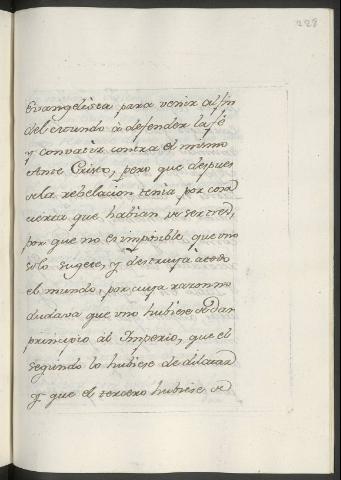 228
Evangelista para venir al fin
del mundo à defender la fê
y convatir contra el mismo
Ante Cristo, pero que despues
de la rebelacion tenia por cosa
cierta que habian de ser tres,
por que no es imposible, que uno
solo sugete, y destruya à todo
el mundo, por cuya razon no
dudava que uno hubiese de dar
principio al Imperio, que el
segundo lo hubiese de dilatar
y que el tercero hubiese de